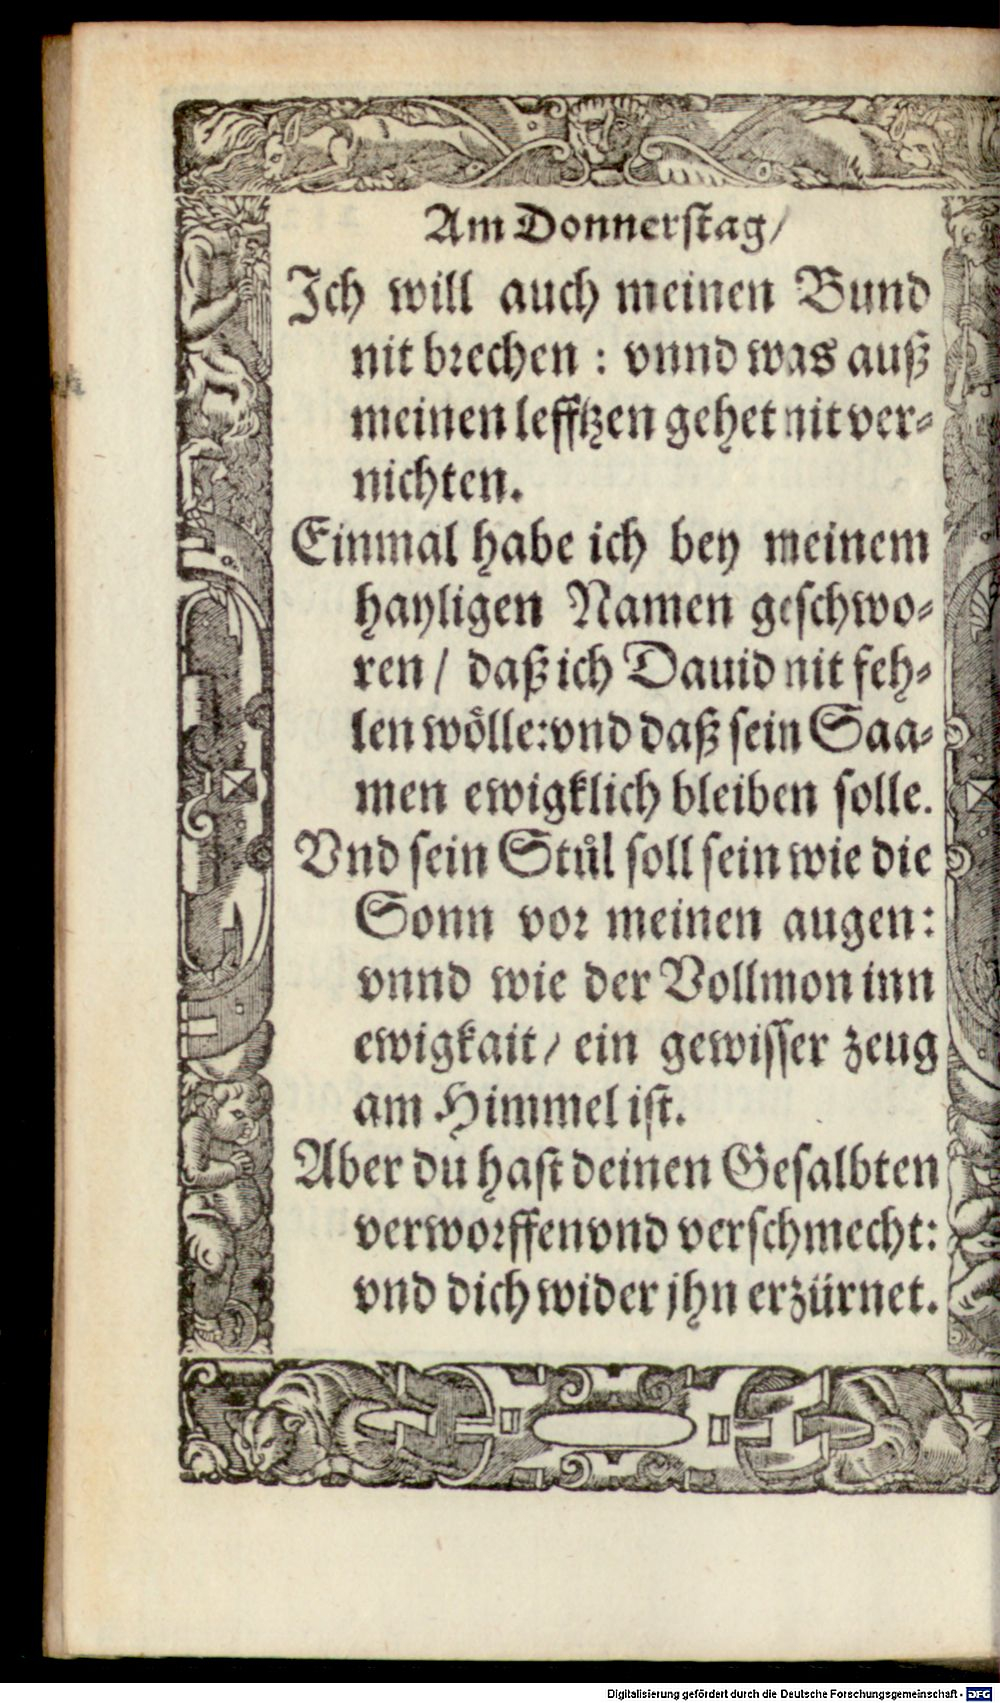 Am Donnerstag/
Ich will auch meinen Bund
nit brechen : vnnd was auß
meinen lefftzen gehet nit ver⸗
nichten.
Einmal habe ich bey meinem
hayligen Namen geschwo⸗
ren / daß ich Dauid nit feh⸗
len wölle:vnd daß sein Saa⸗
men ewigklich bleiben solle.
Vnd sein Stůl soll sein wie die
Sonn vor meinen augen:
vnnd wie der Vollmon inn
ewigkait / ein gewisser zeug
am Himmel ist.
Aber du hast deinen Gesalbten
verworffen vnd verschmecht:
vnd dich wider jhn erzürnet.
Digitalisierung gefördert durch die Deutsche Forschungsgemeinschaft - DFG